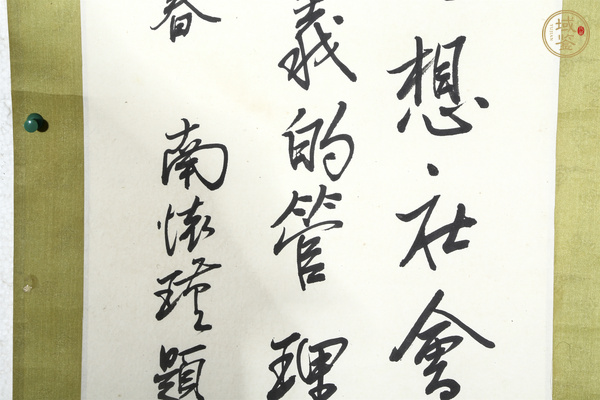 想社會
義的管理
春 南懷瑾題
域鉴